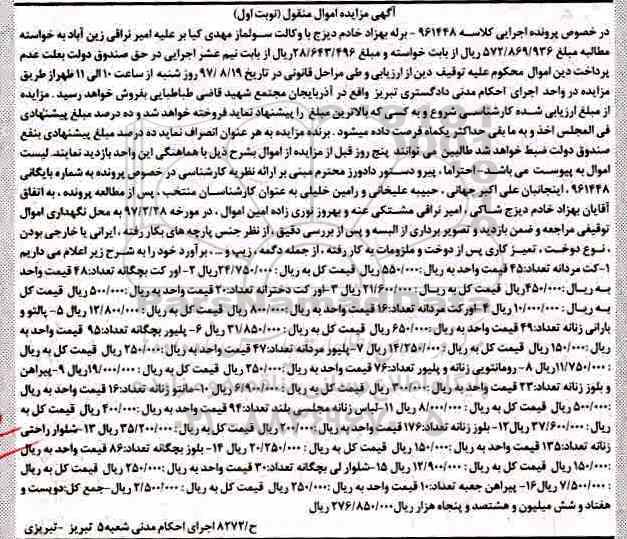 آگهی مزایده اموال منقول (نوبت اول)
در خصوص پرونده اجرایی کلاسه ۹۶۱۴۴۸ - برله بهزاد خادم دیزج با وکالت سولماز مهدی کیا بر علیه امیر نراقی زین آباد به خواسته
مطالبه مبلغ ۵۷۲/۸۶۹/۹۳۶ ریال از بابت خواسته و مبلغ ۲۸/۶۴۳/۴۹۶ ریال از بابت نیم عشر اجرایی در حق صندوق دولت بعلت عدم
پرداخت دین اموال محکوم علیه توقیف دین از ارزیابی و طی مراحل قانونی در تاریخ ۹۷/۸/۱۹ روز شنبه از ساعت ۱۰ الی ۱۱ ظهر از طریق
مزایده در واحد اجرای احکام مدنی دادگستری تبریز واقع در آذربایجان مجتمع شهید قاضی طباطبایی بفروش خواهد رسید . مزایده
از مبلغ ارزیابی شده کارشناسی شروع و به کسی که بالاترین مبلغ را پیشنهاد نماید فروخته خواهد شد و ده درصد مبلغ پیشنهادی
فی المجلس اخذ و به ما بقی حداکثر یکماه فرصت داده میشود . برنده مزایده به هر عنوان انصراف نماید ده درصد مبلغ پیشنهادی بنفع
صندوق دولت ضبط خواهد شد طالبین می توانند پنج روز قبل از مزایده از اموال بشرح ذیل با هماهنگی این واحد بازدید نمایند. لیست
اموال به پیوست می باشد- احتراما، پیرو دستور دادورز محترم مبنی بر ارائه نظریه کارشناسی در خصوص پرونده به شماره بایگانی
۹۶۱۴۴۸ ، اینجانبان علی اکبر جهانی ، حبیبه علیخانی و رامین خلیلی به عنوان کارشناسان منتخب ، پس از مطالعه پرونده ، به اتفاق
آقایان بهزاد خادم دیزج شاکی ، امیر نراقی مشتکی عنه و بهروز نوری زاده امین اموال ، در مورخه ۹۷/۲/۲۸ به محل نگهداری اموال
توقیفی مراجعه و ضمن بازدید و تصویر برداری از البسه و پس از بررسی دقیق ، از نظر جنس پارچه های بکار رفته ، ایرانی یا خارجی بودن
، نوع دوخت ، تمیز کاری پس از دوخت و ملزومات به کار رفته ، از جمله دگمه ، زیپ و ... ، برآورد خود را به شرح زیر اعلام می داریم
۱-کت مردانه تعداد:۴۵ قیمت واحد به ریال:۵۵۰/۰۰۰ ریال قیمت کل به ریال : ۲۴/۷۵۰/۰۰۰ ریال ۲- اور کت بچگانه تعداد:۴۸ قیمت واحد
به ریال:۴۵۰/۰۰۰ ریال قیمت کل به ریال : ۲۱/۶۰۰/۰۰۰ ریال ۳-اور کت دخترانه تعداد:۲۰ قیمت واحد به ریال:۵۰۰/۰۰۰ ریال قیمت کل
به ریال : ۱۰/۰۰۰/۰۰۰ ریال ۴-اورکت مردانه تعداد:۱۶ قیمت واحد به ریال:۸۰۰/۰۰۰ ریال قیمت کل به ریال : ۱۲/۸۰۰/۰۰۰ ریال ۵- پالتو و
بارانی زنانه تعداد:۴۹ قیمت واحد به ریال:۶۵۰/۰۰۰ ریال قیمت کل به ریال : ۳۱/۸۵۰/۰۰۰ ریال ۶- پلیور بچگانه تعداد:۹۵ قیمت واحد به
ریال:۱۵۰/۰۰۰ ریال قیمت کل به ریال : ۱۴/۲۵۰/۰۰۰ ریال ۷-پلیور مردانه تعداد:۴۷ قیمت واحد به ریال:۲۵۰/۰۰۰ ریال قیمت کل به ریال
: ۱۱/۷۵۰/۰۰۰ ریال ۸- رومانتویی زنانه و پلیور تعداد:۷۶ قیمت واحد به ریال:۲۵۰/۰۰۰ ریال قیمت کل به ریال:۱۹/۰۰۰/۰۰۰ ریال ۹-پیراهن
و بلوز زنانه تعداد:۲۳ قیمت واحد به ریال:۳۰۰/۰۰۰ ریال قیمت کل به ریال : ۶/۹۰۰/۰۰۰ ریال ۱۰-مانتو زنانه تعداد:۱۶ قیمت واحد به ریال
:۵۰۰/۰۰۰ ریال قیمت کل به ریال : ۸/۰۰۰/۰۰۰ ریال ۱۱-لباس زنانه مجلسی بلند تعداد:۹۴ قیمت واحد به ریال:۴۰۰/۰۰۰ ریال قیمت کل به
ریال : ۳۷/۶۰۰/۰۰۰ ریال۱۲- بلوز زنانه تعداد:۱۷۶ قیمت واحد به ریال:۲۰۰/۰۰۰ ریال قیمت کل به ریال:۳۵/۲۰۰/۰۰۰ ریال ۱۳-شلوار راحتی
زنانه تعداد:۱۳۵ قیمت واحد به ریال:۱۵۰/۰۰۰ ریال قیمت کل به ریال : ۲۰/۲۵۰/۰۰۰ ریال ۱۴- بلوز بچگانه تعداد:۸۶ قیمت واحد به ریال
:۱۵۰/۰۰۰ ریال قیمت کل به ریال : ۱۲/۹۰۰/۰۰۰ ریال ۱۵-شلوار لی بچگانه تعداد:۳۰ قیمت واحد به ریال:۲۵۰/۰۰۰ ریال قیمت کل به ریال
: ۷/۵۰۰/۰۰۰ ریال۱۶- پیراهن جعبه تعداد:۱۰ قیمت واحد به ریال:۲۵۰/۰۰۰ ریال قیمت کل به ریال : ۲/۵۰۰/۰۰۰ ریال-جمع کل:دویست و
هفتاد و شش میلیون و هشتصد و پنجاه هزار ریال ۲۷۶/۸۵۰/۰۰۰ ریال
ح/۸۲۷۲ اجرای احکام مدنی شعبه ۵ تبریز -تبریزی